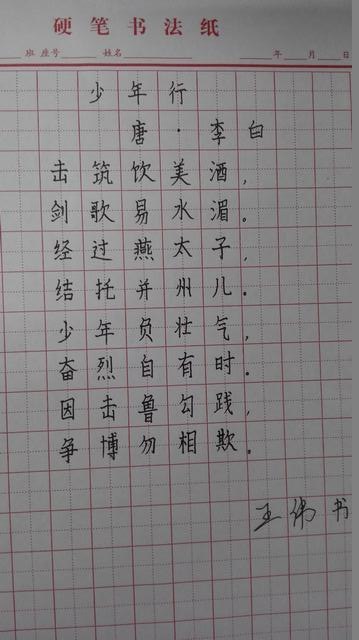 硬笔书法纸
班 座号 姓名 年 月 日
少年行
唐·李白
击筑饮美酒,
剑歌易水湄。
经过燕太子,
结托并州儿。
少年负壮气,
奋烈自有时。
因击鲁勾践,
争博勿相欺。
王伟书